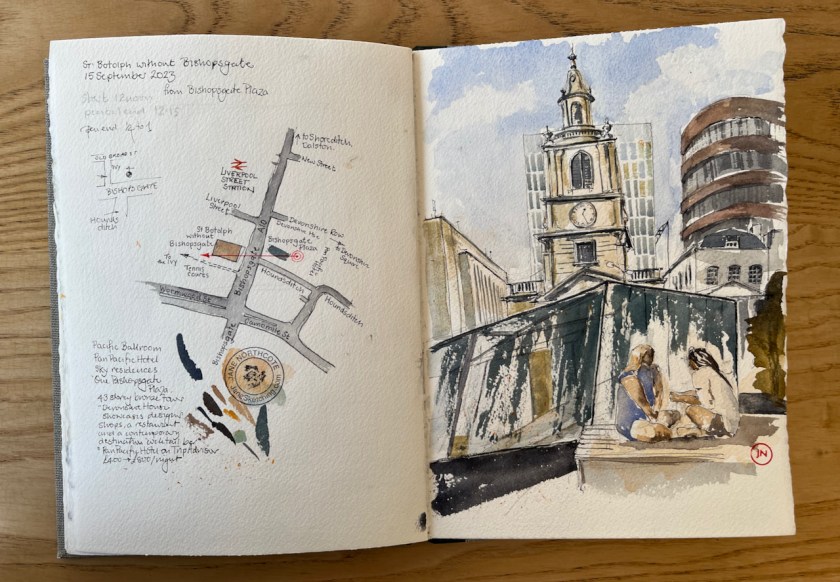 St Botolph without Bishopsgate
15 September 2023
from Bishopsgate Plaza
Start 12noon
pencil end 12:15
pen end ¼ to 1
OLD BROAD ST
BISHOPSGATE
Hounds
ditch
to Shoreditch
Dalston
New Street
LIVERPOOL
STREET
STATION
Liverpool
Street
A10
Devonshire Row
St Botolph
without
Bishopsgate
Bishopsgate
Plaza
To
the Ivy
Tennis
Courts
Bishopsgate
Houndsditch
Houndsditch
Wormwood St
Camomile St
Bishopsgate
JANE NORTHCOTE
Pacific Ballroom
Pan Pacific Hotel
Sky residences
One Bishopsgate
Plaza
43 storey bronze tower
Devonshire House
showcases designer
shops, a restaurant
and a contemporary
destination cocktail bar
Pan Pacific Hotel on TripAdvisor
£400 → £800/night
JN